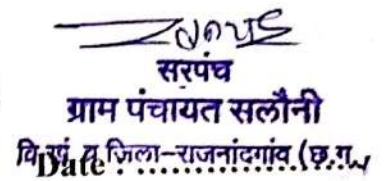 सरपंच
ग्राम पंचायत सलौनी
वि.खं. व जिला-राजनांदगांव (छ.ग.
Date :..................